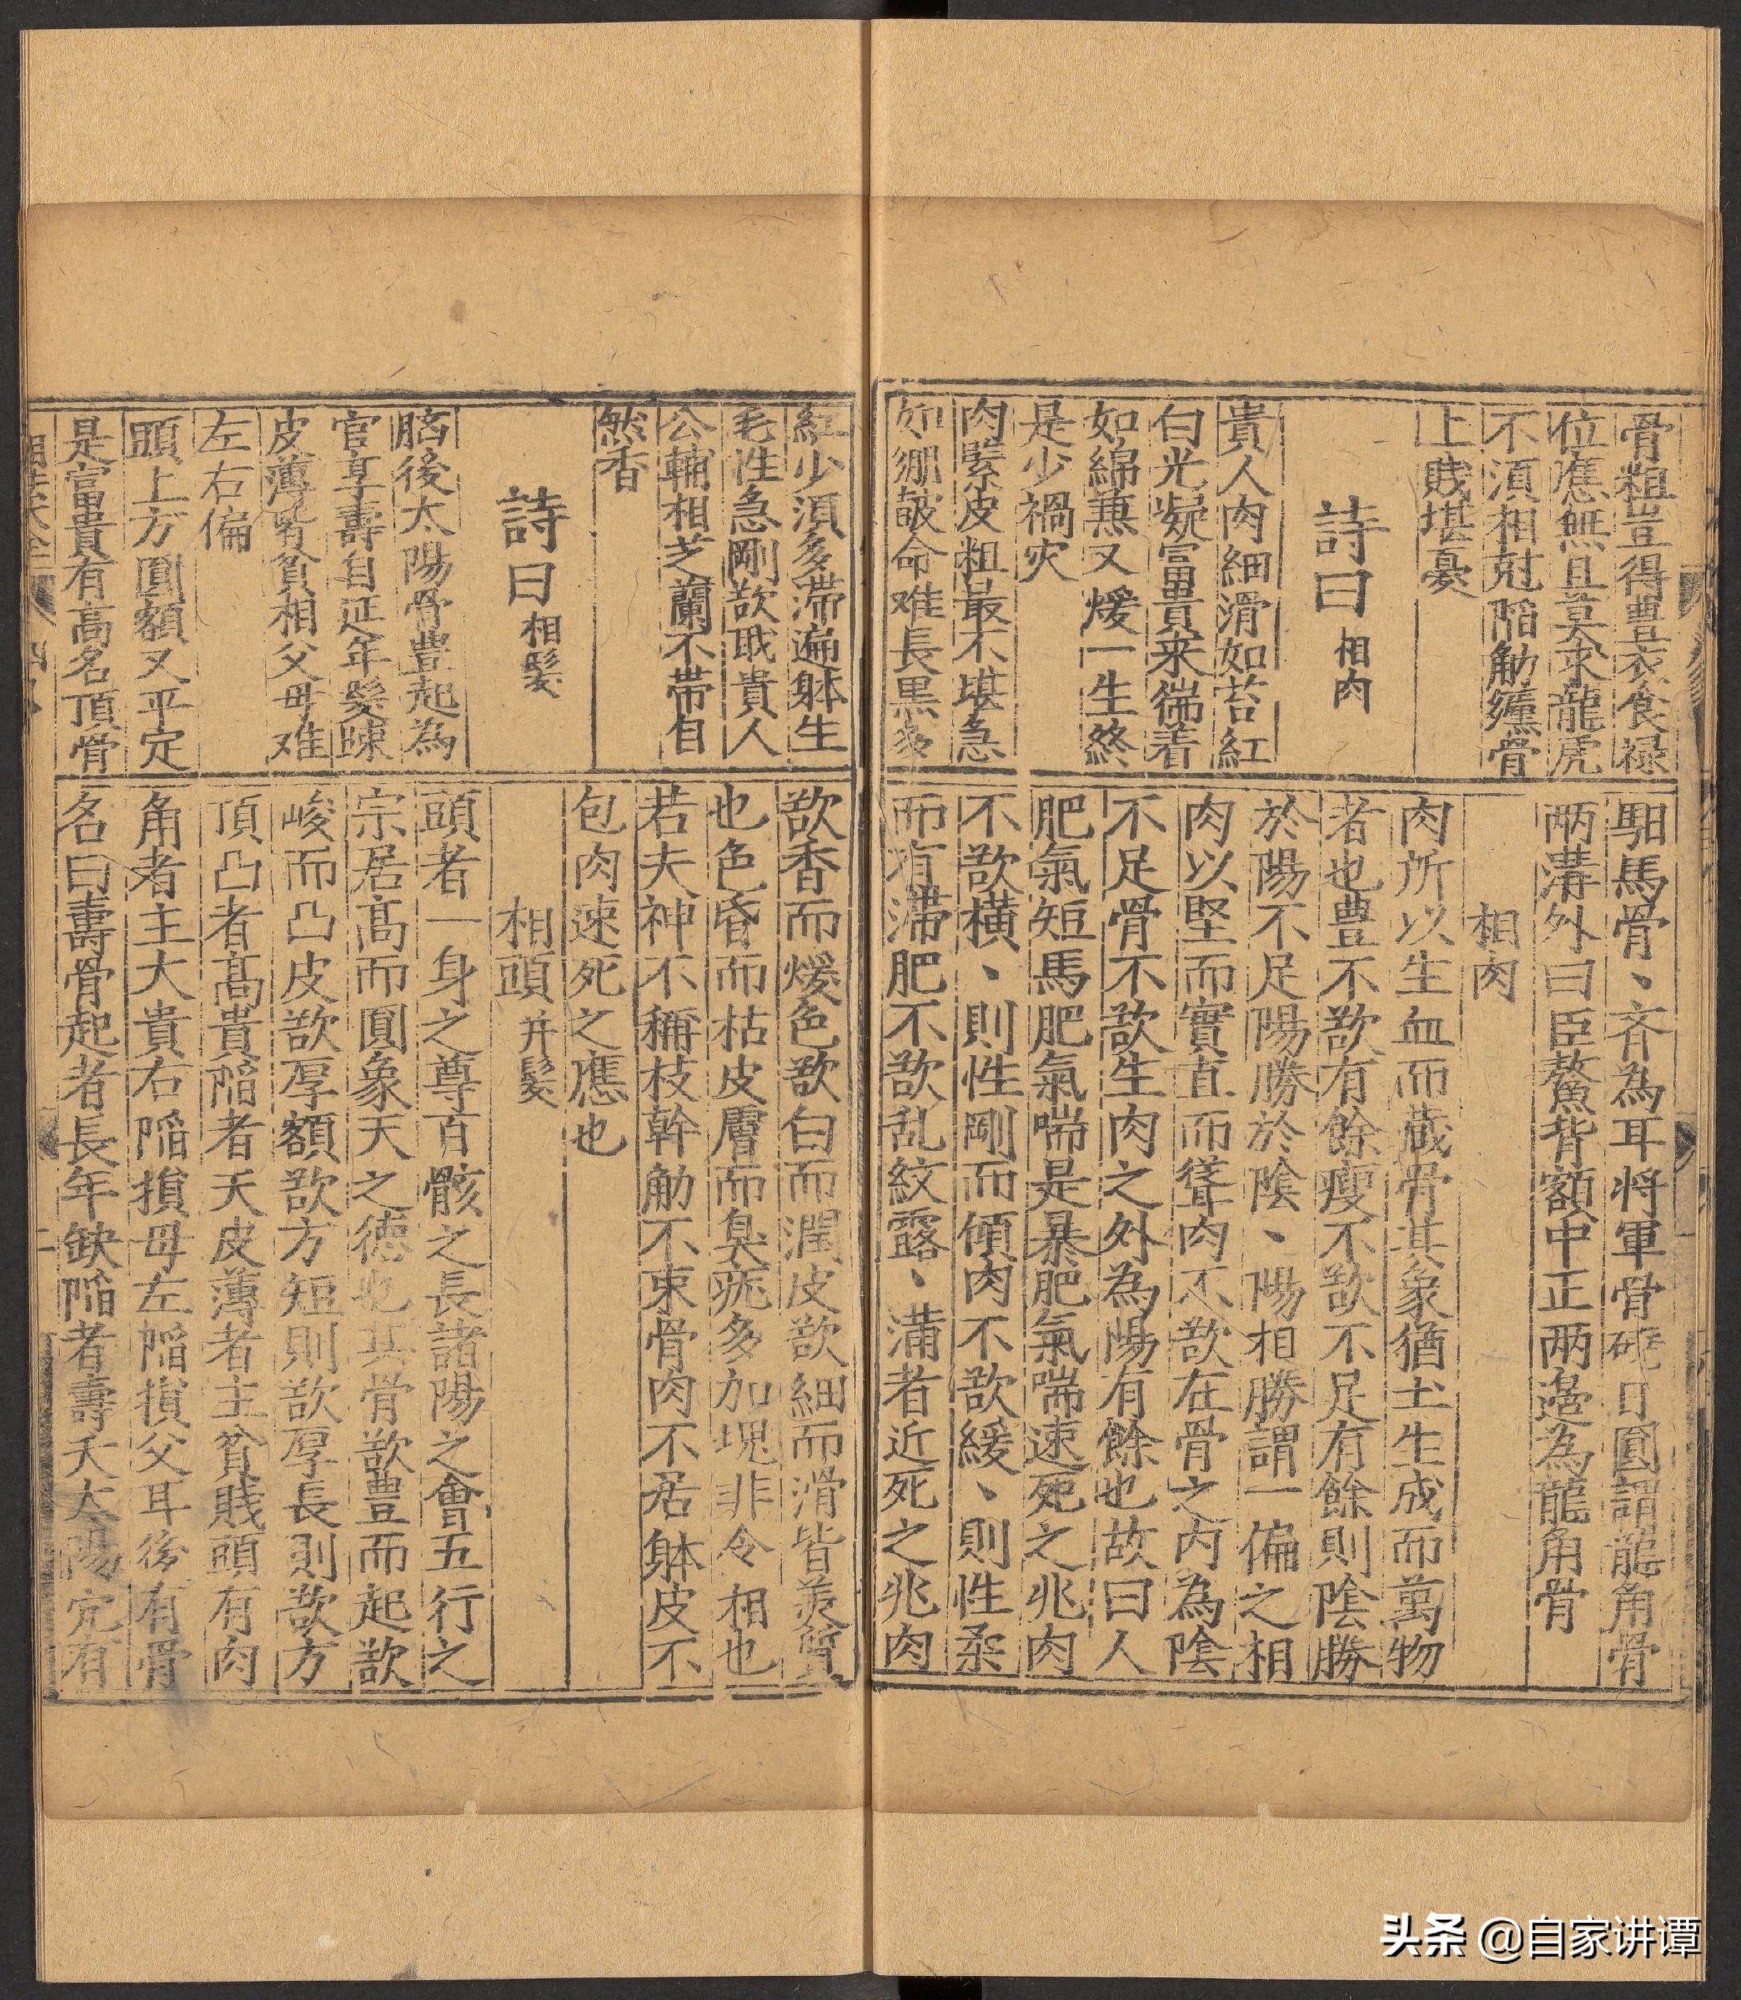 骨粗豈得豊衣食禄
位應無且莫求龍虎
不須相尅陷觔纏骨
上賎堪憂
詩曰 相肉
貴人肉細滑如苔紅
白光凝富貴来揣着
如綿兼又煖一生終
是少禍灾
肉緊皮粗最不堪急
如綳皷命难長黒多
馹馬骨、齐為耳将軍骨 日圎謂龍角骨
两溝外曰臣鰲背額中正两邉為龍角骨
相肉
肉所以生血而蔵骨其象猶土生成而萬物
者也豊不欲有餘瘦不欲不足有餘則陰勝
於陽不足陽勝於陰、陽相勝謂一偏之相
肉以堅而實直而聳肉不欲在骨之内為陰
不足骨不欲生肉之外為陽有餘也故曰人
肥氣短馬肥氣喘是暴肥氣喘速死之兆肉
不欲橫、則性剛而傾肉不欲緩、則性柔
而有滞肥不欲乱紋露、满者近死之兆肉
紅少須多滞遍躰生
毛性急剛欲戢貴人
公輔相芝蘭不帶自
然香
詩曰 相髮
腦後太陽骨豊起為
官享壽自延年髮踈
皮薄皆貧相父母难
左右偏
頭上方圓額又平定
是富貴有高名頂骨
欲香而煖色欲白而潤皮欲細而滑皆羙質
也色昏而枯皮膚而臭疵多加塊非令相也
若夫神不稱枝幹觔不束骨肉不居躰皮不
包肉速死之應也
相頭 并髮
頭者一身之尊百骸之長諸陽之會五行之
宗居髙而圓象天之德也其骨欲豊而起欲
峻而凸皮欲厚額欲方短則欲厚長則欲方
頂凸者髙貴陷者夭皮薄者主貧賎頭有肉
角者主大貴右陷損母左陷損父耳後有骨
名曰壽骨起者長年缺陷者壽夭太陽穴有
头条 @自家讲谭